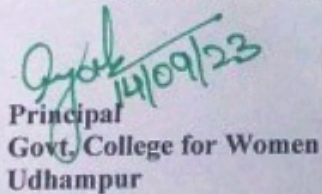 14/09/23
Principal
Govt. College for Women
Udhampur